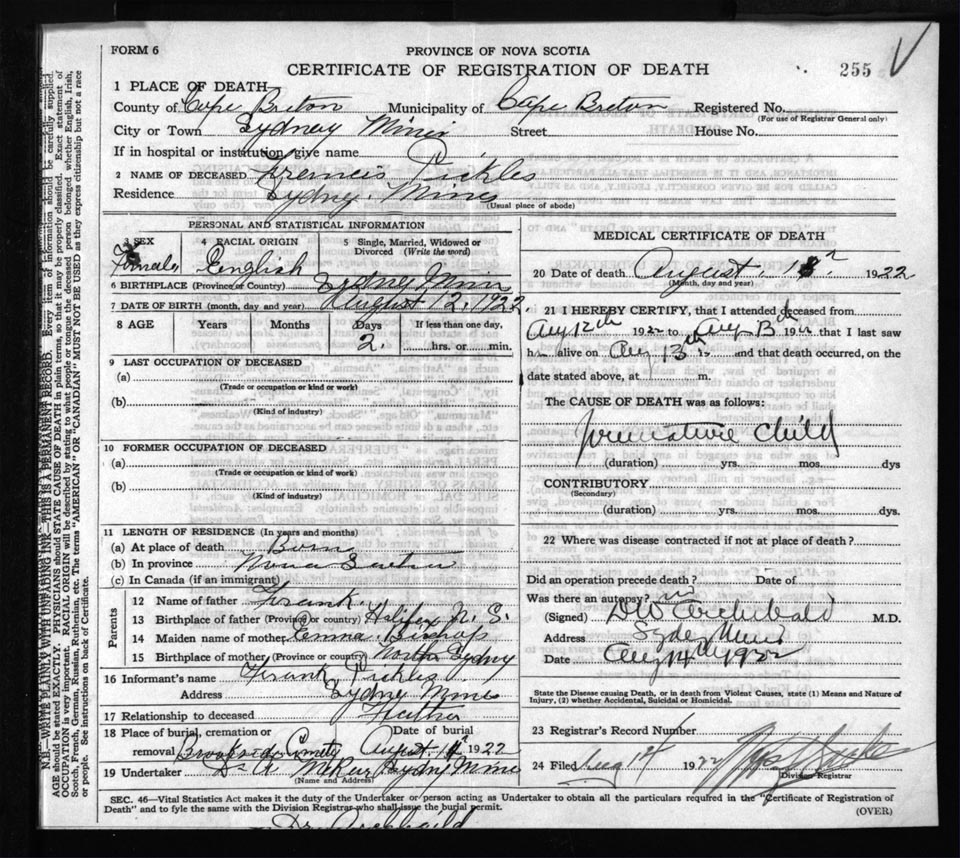 FORM 6
PROVINCE OF NOVA SCOTIA
CERTIFICATE OF REGISTRATION OF DEATH
255
1 PLACE OF DEATH
County of Cape Breton Municipality of Cape Breton Registered No.
(For use of Registrar General only)
City or Town Sydney Mines Street House No.
If in hospital or institution, give name
2 NAME OF DECEASED Francis Pickles
Residence Sydney Mines
(Usual place of abode)
PERSONAL AND STATISTICAL INFORMATION
3 SEX 4 RACIAL ORIGIN 5 Single, Married, Widowed or Divorced (Write the word)
Female English
6 BIRTHPLACE (Province or Country) Sydney Mines
7 DATE OF BIRTH (month, day and year) August 12, 1922
8 AGE Years Months Days If less than one day,
2 hrs. or min.
9 LAST OCCUPATION OF DECEASED
(a)
(Trade or occupation or kind or work)
(b)
(Kind of industry)
10 FORMER OCCUPATION OF DECEASED
(a)
(Trade or occupation or kind of work)
(b)
(Kind of industry)
11 LENGTH OF RESIDENCE (In years and months)
(a) At place of death Born
(b) In province Nova Scotia
(c) In Canada (if an immigrant)
Parents
12 Name of father Frank
13 Birthplace of father (Province or country) Halifax N. S.
14 Maiden name of mother Emma Bishop
15 Birthplace of mother (Province or country) North Sydney
16 Informant's name Frank Pickles
Address Sydney Mines
17 Relationship to deceased Father
18 Place of burial, cremation or removal Date of burial
Brookside Cemety August 1922
19 Undertaker Sydney Mines
(Name and Address)
MEDICAL CERTIFICATE OF DEATH
20 Date of death August 1922
(Month, day and year)
21 I HEREBY CERTIFY, that I attended deceased from
Aug 12th 1922 to Aug 13th 1922 that I last saw
h alive on Aug 13th 19 and that death occurred, on the
date stated above, at m.
The CAUSE OF DEATH was as follows:
premature child
(duration) yrs. mos. dys
CONTRIBUTORY
(Secondary)
(duration) yrs. mos. dys.
22 Where was disease contracted if not at place of death?
Did an operation precede death? Date of
Was there an autopsy? no
(Signed) D W Archibald M.D.
Address Sydney Mines
Date Aug 14th 1922
State the Disease causing Death, or in death from Violent Causes, state (1) Means and Nature of
Injury, (2) whether Accidental, Suicidal or Homicidal.
23 Registrar's Record Number
24 Filed Aug 1922
Division Registrar
SEC. 46—Vital Statistics Act makes it the duty of the Undertaker or person acting as Undertaker to obtain all the particulars required in the "Certificate of Registration of
Death" and to fyle the same with the Division Registrar who shall issue the burial permit.
(OVER)
Dr Archibald
N.B.—WRITE PLAINLY WITH UNFADING INK—THIS IS A PERMANENT RECORD. Every item of information should be carefully supplied.
AGE should be stated EXACTLY. PHYSICIANS should STATE CAUSE OF DEATH in plain terms, so that it may be properly classified. Exact statement of
OCCUPATION is very important. RACIAL ORIGIN will be described by stating to what people or tongue the deceased person belonged whether English, Irish,
Scotch, French, German, Russian, Ruthenian, etc. The terms "AMERICAN" OR "CANADIAN" MUST NOT BE USED as they express citizenship but not a race
or people. See instructions on back of Certificate.